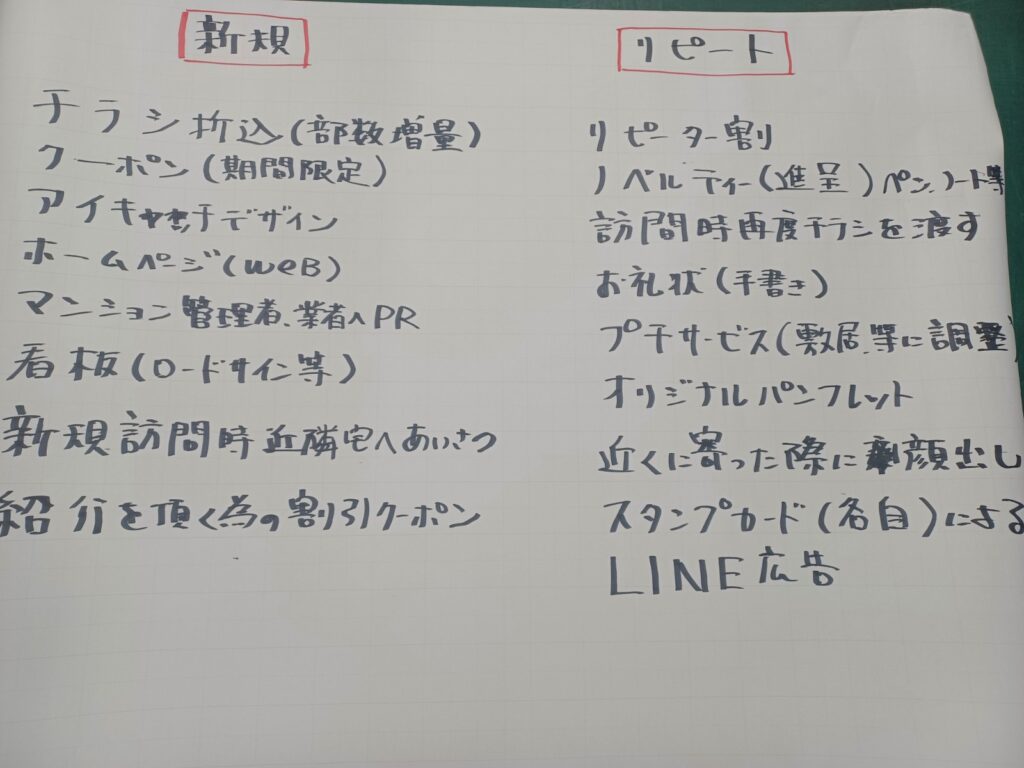 新規
チラシ折込(部数増量)
クーポン(期間限定)
アイキャッチデザイン
ホームページ(WeB)
マンション管理者、業者へPR
看板(ロードサイン等)
新規訪問時近隣宅へあいさつ
紹介を頂く為の割引クーポン
リピート
リピーター割り
ノベルティー(進呈)ペン、ノート等
訪問時再度チラシを渡す
お礼状(手書き)
プチサービス(敷居、等に調整)
オリジナルパンフレット
近くに寄った際に顔出し
スタンプカード(各自)による
LINE広告